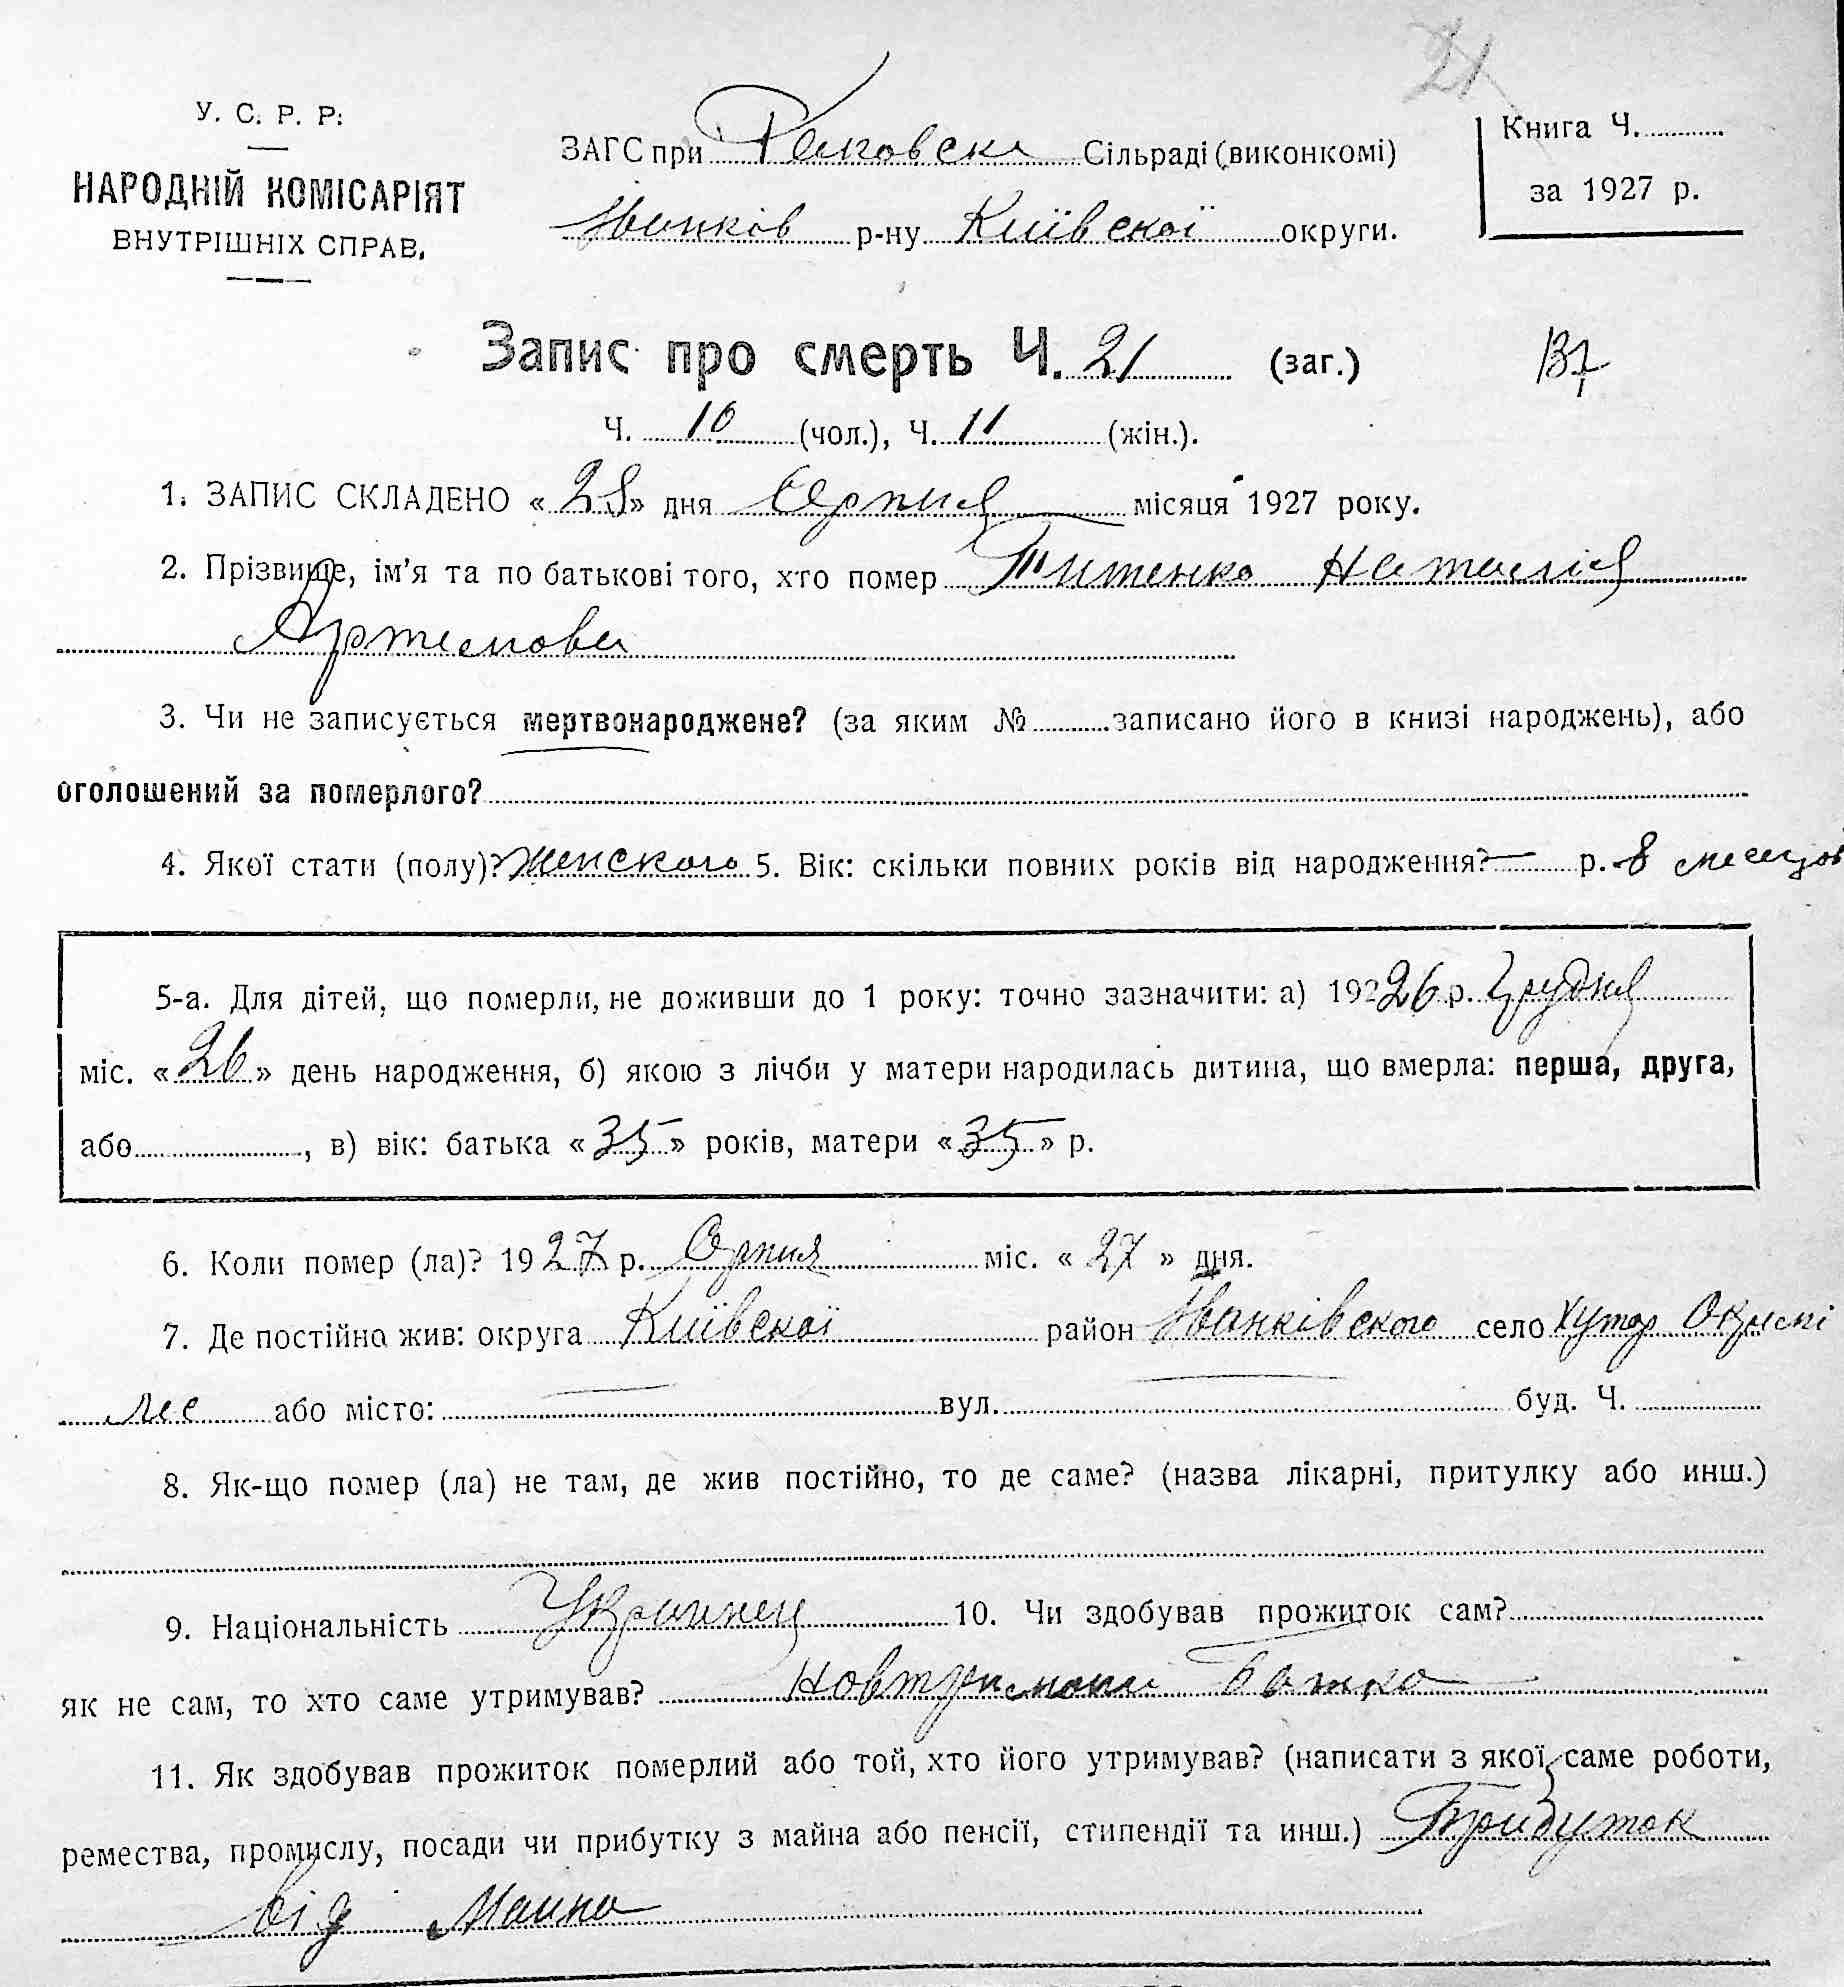 21
У. С. Р. Р.
НАРОДНІЙ КОМІСАРІЯТ
ВНУТРІШНІХ СПРАВ.
ЗАГС при Сільраді (виконкомі)
Іванків р-ну Київскої округи.
Книга Ч.
за 1927 р.
Запис про смерть Ч. 21 (заг.)
Ч. 10 (чол.), Ч. 11 (жін.).
1. ЗАПИС СКЛАДЕНО « 28 » дня Серпня місяця 1927 року.
2. Прізвище, ім'я та по батькові того, хто помер Титенко Наталія
Артемова
3. Чи не записується мертвонароджене? (за яким № записано його в книзі народжень), або
оголошений за померлого?
4. Якої стати (полу)? женского 5. Вік: скільки повних років від народження? — р. 8 месецов
5-а. Для дітей, що померли, не доживши до 1 року: точно зазначити: а) 192 26 р. Грудня
міс. « 26 » день народження, б) якою з лічби у матери народилась дитина, що вмерла: перша, друга,
або , в) вік: батька « 35 » років, матери « 35 » р.
6. Коли помер (ла)? 1927 р. Серпня міс. « 27 » дня.
7. Де постійно жив: округа Київскої район Іванківского село хутор
або місто: вул. буд. Ч.
8. Як-що помер (ла) не там, де жив постійно, то де саме? (назва лікарні, притулку або инш.)
9. Національність Украинец 10. Чи здобував прожиток сам?
як не сам, то хто саме утримував? Батко
11. Як здобував прожиток померлий або той, хто його утримував? (написати з якої саме роботи,
ремества, промислу, посади чи прибутку з майна або пенсії, стипендії та инш.) Прибуток
від Маина